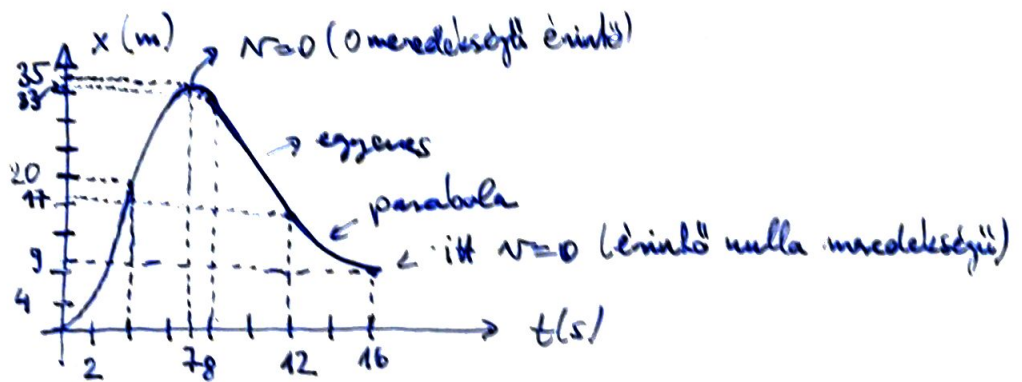 x (m)
v=0 (0 meredekségű érintő)
35
33
→ egyenes
20
17
parabola
9
itt v=0 (érintő nulla meredekségű)
4
t(s)
2 7 8 12 16